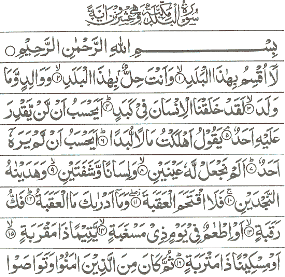 سُورَةُ الْبَلَدِ مَكِّيَّةٌ وَهِيَ عِشْرُونَ آيَةً
بِسْمِ اللّٰهِ الرَّحْمٰنِ الرَّحِيْمِ
لَا اُقْسِمُ بِهٰذَا الْبَلَدِ ۙ۱ وَاَنْتَ حِلٌّ بِهٰذَا الْبَلَدِ ۙ۲ وَوَالِدٍ وَّمَا
وَلَدَ ۙ۳ لَقَدْ خَلَقْنَا الْاِنْسَانَ فِيْ كَبَدٍ ۴ اَيَحْسَبُ اَنْ لَّنْ يَّقْدِرَ
عَلَيْهِ اَحَدٌ ۘ۵ يَقُوْلُ اَهْلَكْتُ مَالًا لُّبَدًا ۶ اَيَحْسَبُ اَنْ لَّمْ يَرَهٗٓ
اَحَدٌ ۷ اَلَمْ نَجْعَلْ لَّهٗ عَيْنَيْنِ ۙ۸ وَلِسَانًا وَّشَفَتَيْنِ ۙ۹ وَهَدَيْنٰهُ
النَّجْدَيْنِ ۱۰ فَلَا اقْتَحَمَ الْعَقَبَةَ ۱۱ وَمَآ اَدْرٰىكَ مَا الْعَقَبَةُ ۱۲ فَكُّ
رَقَبَةٍ ۙ۱۳ اَوْ اِطْعٰمٌ فِيْ يَوْمٍ ذِيْ مَسْغَبَةٍ ۙ۱۴ يَّتِيْمًا ذَا مَقْرَبَةٍ ۙ۱۵
اَوْ مِسْكِيْنًا ذَا مَتْرَبَةٍ ۱۶ ثُمَّ كَانَ مِنَ الَّذِيْنَ اٰمَنُوْا وَتَوَاصَوْا